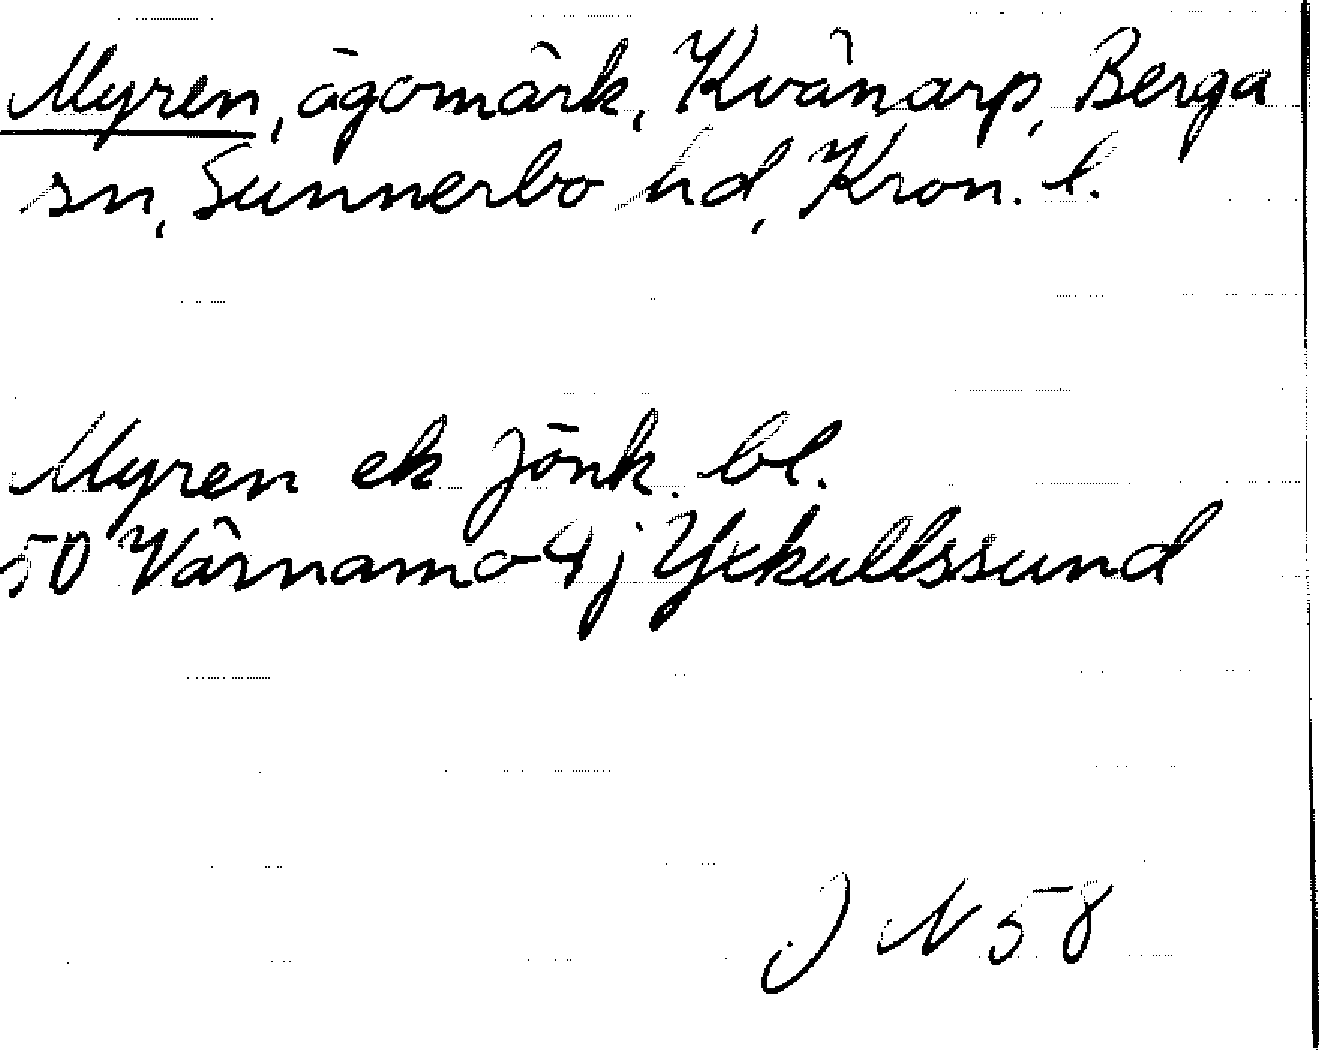 Myren, ägomärk, Kvänarp, Berga
sn, Sunnerbo hd, Kron. l.
Myren ek Jönk. bl.
50 Värnamo 4 j Yxkullssund
J N 58